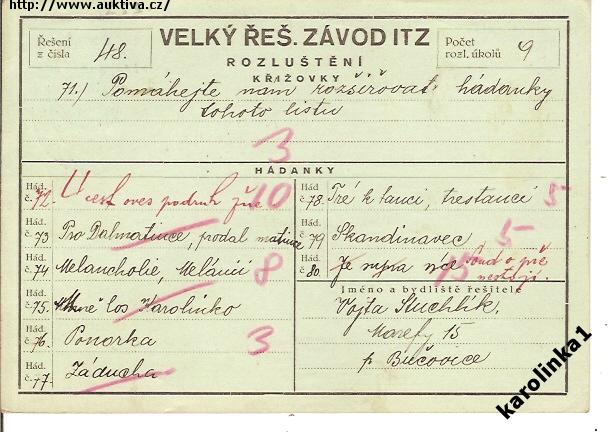 http://www.auktiva.cz/
Řešení
z čísla
48.
VELKÝ ŘEŠ. ZÁVOD ITZ
ROZLUŠTĚNÍ
KŘÍŽOVKY
Počet
rozl. úkolů
9
71.) Pomáhejte nám rozšiřovat hádemky
tohoto listu
3
HÁDANKY
Hád.
č. 72.
oves podruh žne
10
Hád.
č. 73
Pro Dalmatince, podal matince
Hád.
č. 74
Melancholie, Meláncií
8
Hád.
č. 75.
los Karolinko
Hád.
č. 76.
Ponorka
3
Hád.
č. 77.
Záducha
Hád
č. 78.
Tré k tanci, trestanci
5
Hád.
č. 79
Skandinavec
5
Hád.
č. 80
Je
Jméno a bydliště řešitele
Vojta Stuchlík,
Marefy 15
p. Bučovice
karolinka1